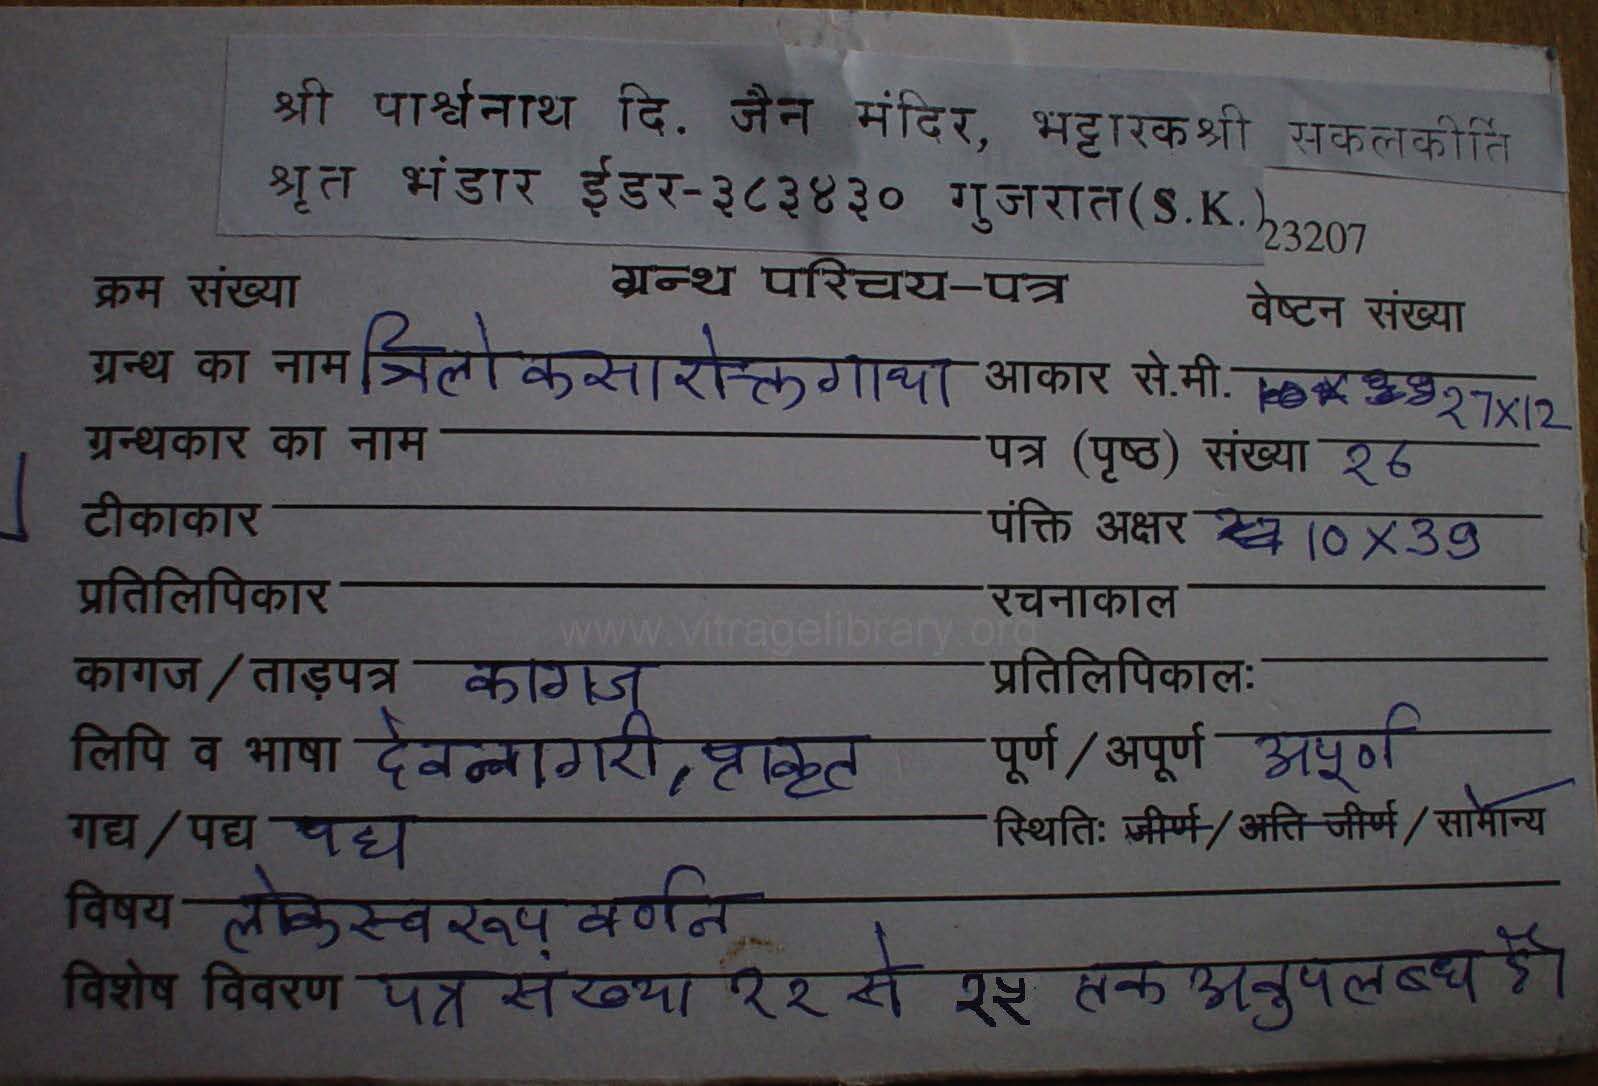 श्री पार्श्वनाथ दि. जैन मंदिर, भट्टारकश्री सकलकीर्ति
श्रृत भंडार ईडर-३८३४३० गुजरात(S.K.)
23207
क्रम संख्या ग्रन्थ परिचय-पत्र वेष्टन संख्या
ग्रन्थ का नाम त्रिलोकसारोक्तगाथा आकार से.मी. 27X12
ग्रन्थकार का नाम पत्र (पृष्ठ) संख्या २६
टीकाकार पंक्ति अक्षर 10X39
प्रतिलिपिकार रचनाकाल
www.vitragelibrary.org
कागज / ताड़पत्र कागज प्रतिलिपिकालः
लिपि व भाषा देवन्नागरी, प्राकृत पूर्ण / अपूर्ण अपूर्ण
गद्य / पद्य पद्य स्थितिः जीर्ण / अति जीर्ण / सामान्य
विषय लोकस्वरूप वर्णन
विशेष विवरण पत्र संख्या २२ से २५ तक अनुपलब्ध है।